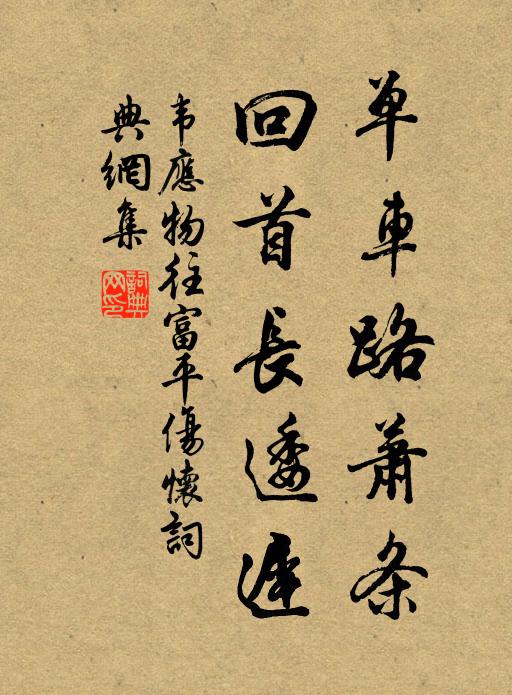 单車路蕭条
回首長逶遲
韦應物往富平傷懷詞
典網集
詞典网印